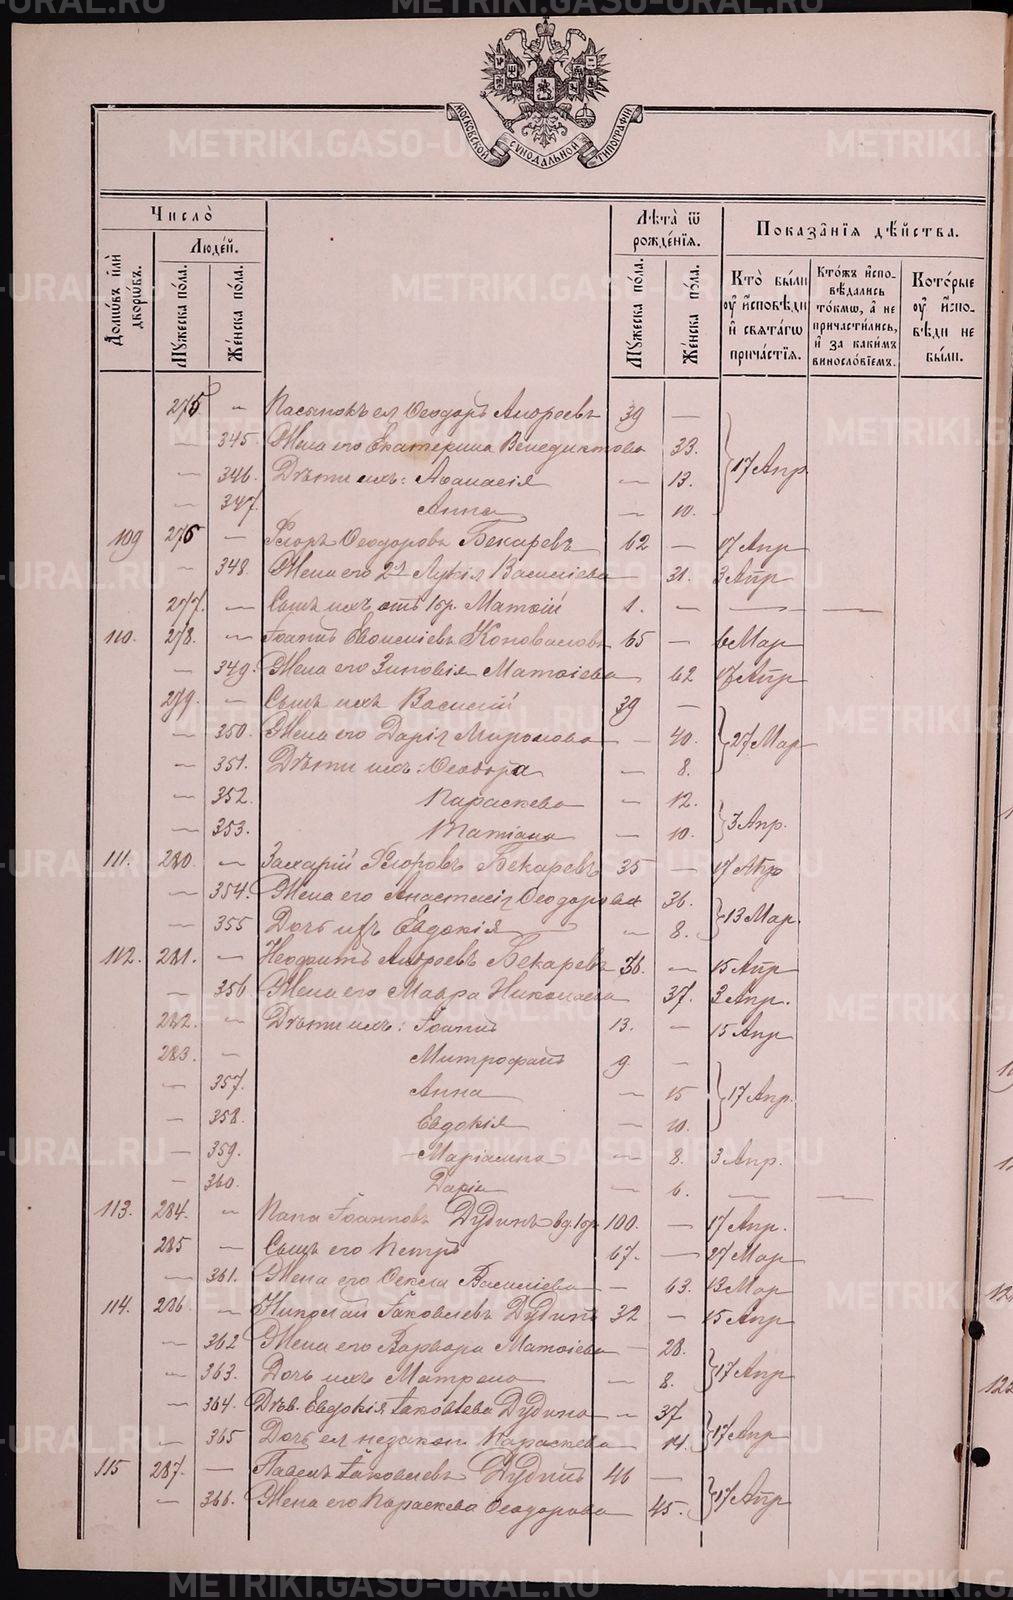 МОСКОВСКОЙ СУНОДАЛЬНОЙ ТИПОГРАФІИ
Число̀
Людéй.
Домѡвъ и҆лѝ дворѡвъ.
Мꙋжеска пóла.
Жéнска пóла.
Лѣ́та ѿ рождéнїѧ.
Мꙋжеска пóла.
Жéнска пóла.
Показа̑нїѧ дѣ́йства.
Кто̀ бы́ли ᲂу҆ и҆сповѣди и҆ свѧта́гѡ прича́стїѧ.
Кто́жъ и҆спо-вѣдались то́кмѡ, а҆ не причасти́лись, и҆ за каки́мъ винословїемъ.
Кото́рые ᲂу҆ и҆спо-вѣди не бы́ли.
275 — Пасынокъ ея Ѳеодоръ Андреевъ 39 —
— 345. Жена его Екатерина Венедиктова 33. 17 Апр.
— 346. Дѣти ихъ: Аѳанасія — 13.
— 347. Анна — 10.
109 276 — Егоръ Ѳеодоровъ Бекаревъ 62 — 17 Апр
— 348. Жена его 2я Лукія Василіева — 31. 3 Апр
277. — Сынъ ихъ отъ 1 бр. Матѳій 1. — — —
110. 278. — Іоаннъ Евѳиміевъ Коноваловъ 65 — 6 Мар
— 349. Жена его Зиновія Матѳіева 62 17 Апр
279. — Сынъ ихъ Василій 39 —
— 350. Жена его Дарія Миронова — 40. 27 Мар
— 351. Дѣти ихъ: Ѳеодора — 8.
— 352. Параскева — 12.
— 353. Татіана — 10. 3 Апр.
111. 280. — Захарій Егоровъ Бекаревъ 35 — 17 Апр
— 354. Жена его Анастасія Ѳеодорова 36.
— 355 Дочь ихъ Евдокія — 8. 13 Мар.
112. 281. — Неофитъ Андреевъ Бекаревъ 36. — 15 Апр
— 356 Жена его Мавра Николаева 37. 3 Апр.
282. — Дѣти ихъ: Іоаннъ 13. — 15 Апр
283. — Митрофанъ 9 —
— 357. Анна — 15 17 Апр.
— 358. Евдокія — 10.
— 359. Маріамна — 8. 3 Апр.
— 360. Дарія — 6. — —
113. 284. — Папа Іоанновъ Дудинъ вд. 1 бр. 100. — 17 Апр.
285 — Сынъ его Петръ 67. — 27 Мар
— 361. Жена его Ѳекла Василіева — 63. 13 Мар
114. 286. — Николай Іаковлевъ Дудинъ 32 — 15 Апр
— 362 Жена его Варвара Матѳіева — 28.
— 363. Дочь ихъ Матрена — 8. 17 Апр
— 364. Дѣв. Евдокія Іаковлева Дудина — 37
— 365 Дочь ея незакон. Параскева 14. 17 Апр
115 287. — Павелъ Іаковлевъ Дудинъ 46 —
— 366. Жена его Параскева Ѳеодорова 45. 17 Апр
METRIKI.GASO-URAL.RU